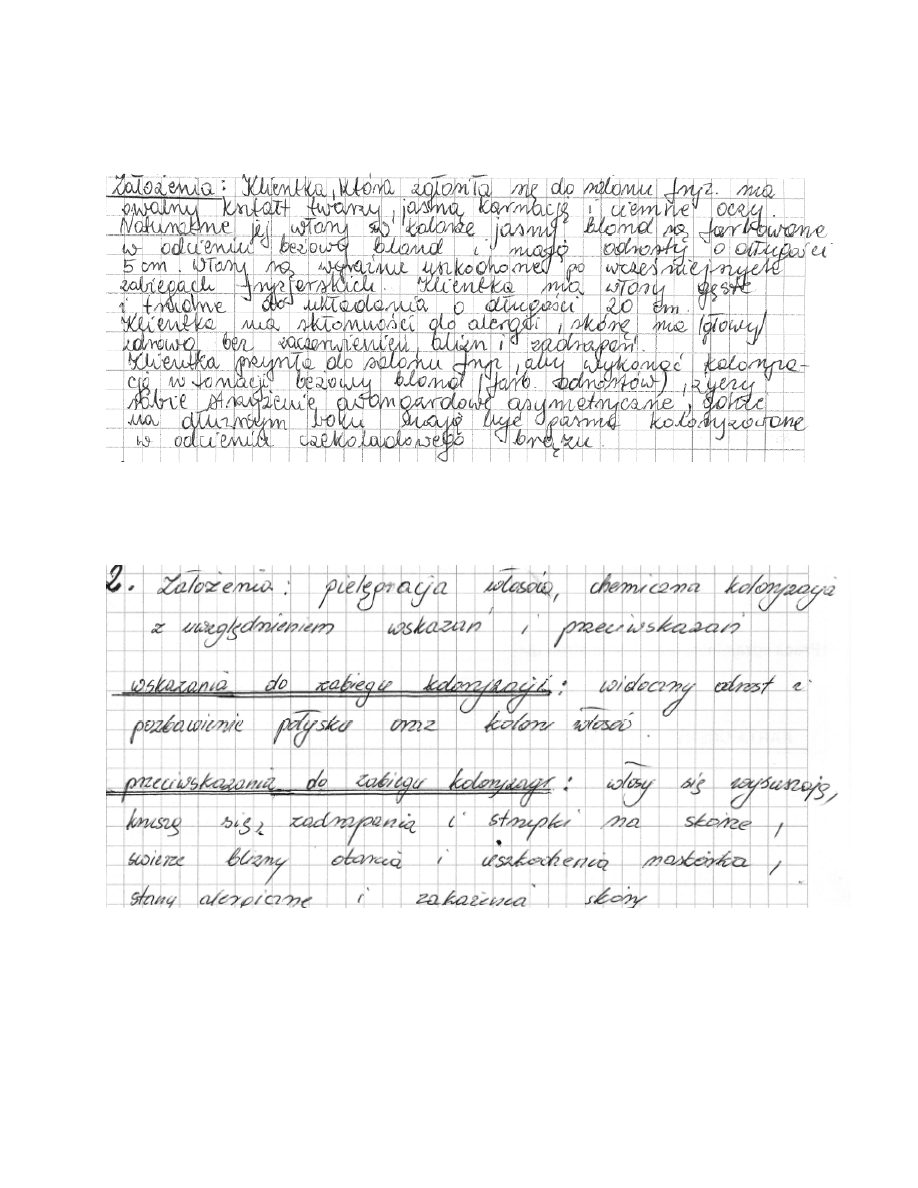 Założenia: Klientka, która zgłosiła się do salonu fryz. ma
owalny kształt twarzy, jasną karnację i ciemne oczy.
Naturalne jej włosy w kolorze jasny blond są farbowane
w odcieniu beżowy blond i mają odrosty o długości
5 cm. Włosy są wyraźnie uszkodzone po wcześniejszych
zabiegach fryzjerskich. Klientka ma włosy gęste
i trudne do układania o długości 20 cm.
Klientka ma skłonności do alergii, skórę ma (głowy)
zdrową bez zaczerwienień blizn i zadrapań.
Klientka przyszła do salonu fryz, aby wykonać koloryza-
cję w tonacji beżowy blond (farb. odrostów), życzy
sobie strzyżenie awangardowe asymetryczne, gdzie
na dłuższym boku mają być pasma koloryzowane
w odcieniu czekoladowego brązu.
2. Założenia: pielęgnacja włosów, chemiczna koloryzacja
z uwzględnieniem wskazań i przeciwskazań
wskazania do zabiegu koloryzacji: widoczny odrost i
pozbawienie połysku oraz koloru włosów.
przeciwskazania do zabiegu koloryzacji: włosy się wysuszają,
kruszą się, zadrapania i strupki na skórze,
świerze blizny otarcia i uszkodzenia naskórka,
stany alergiczne i zakażenia skóry